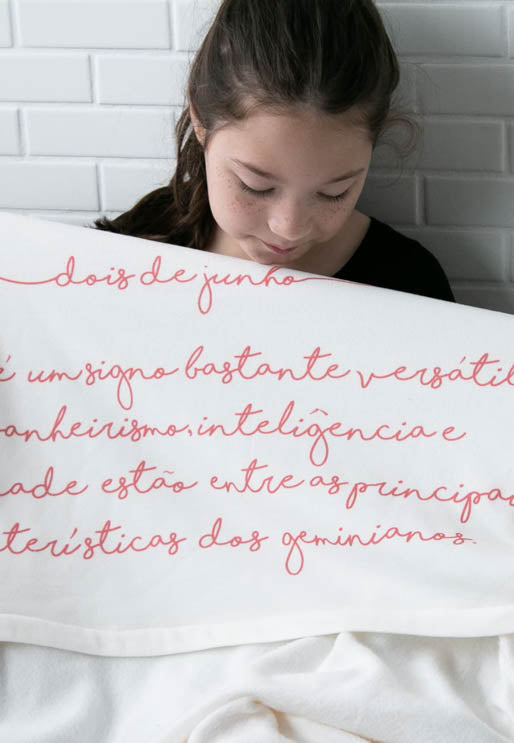 dois de junho
é um signo bastante versátil
anheirismo, inteligência e
ade estão entre as principa
terísticas dos geminianos.